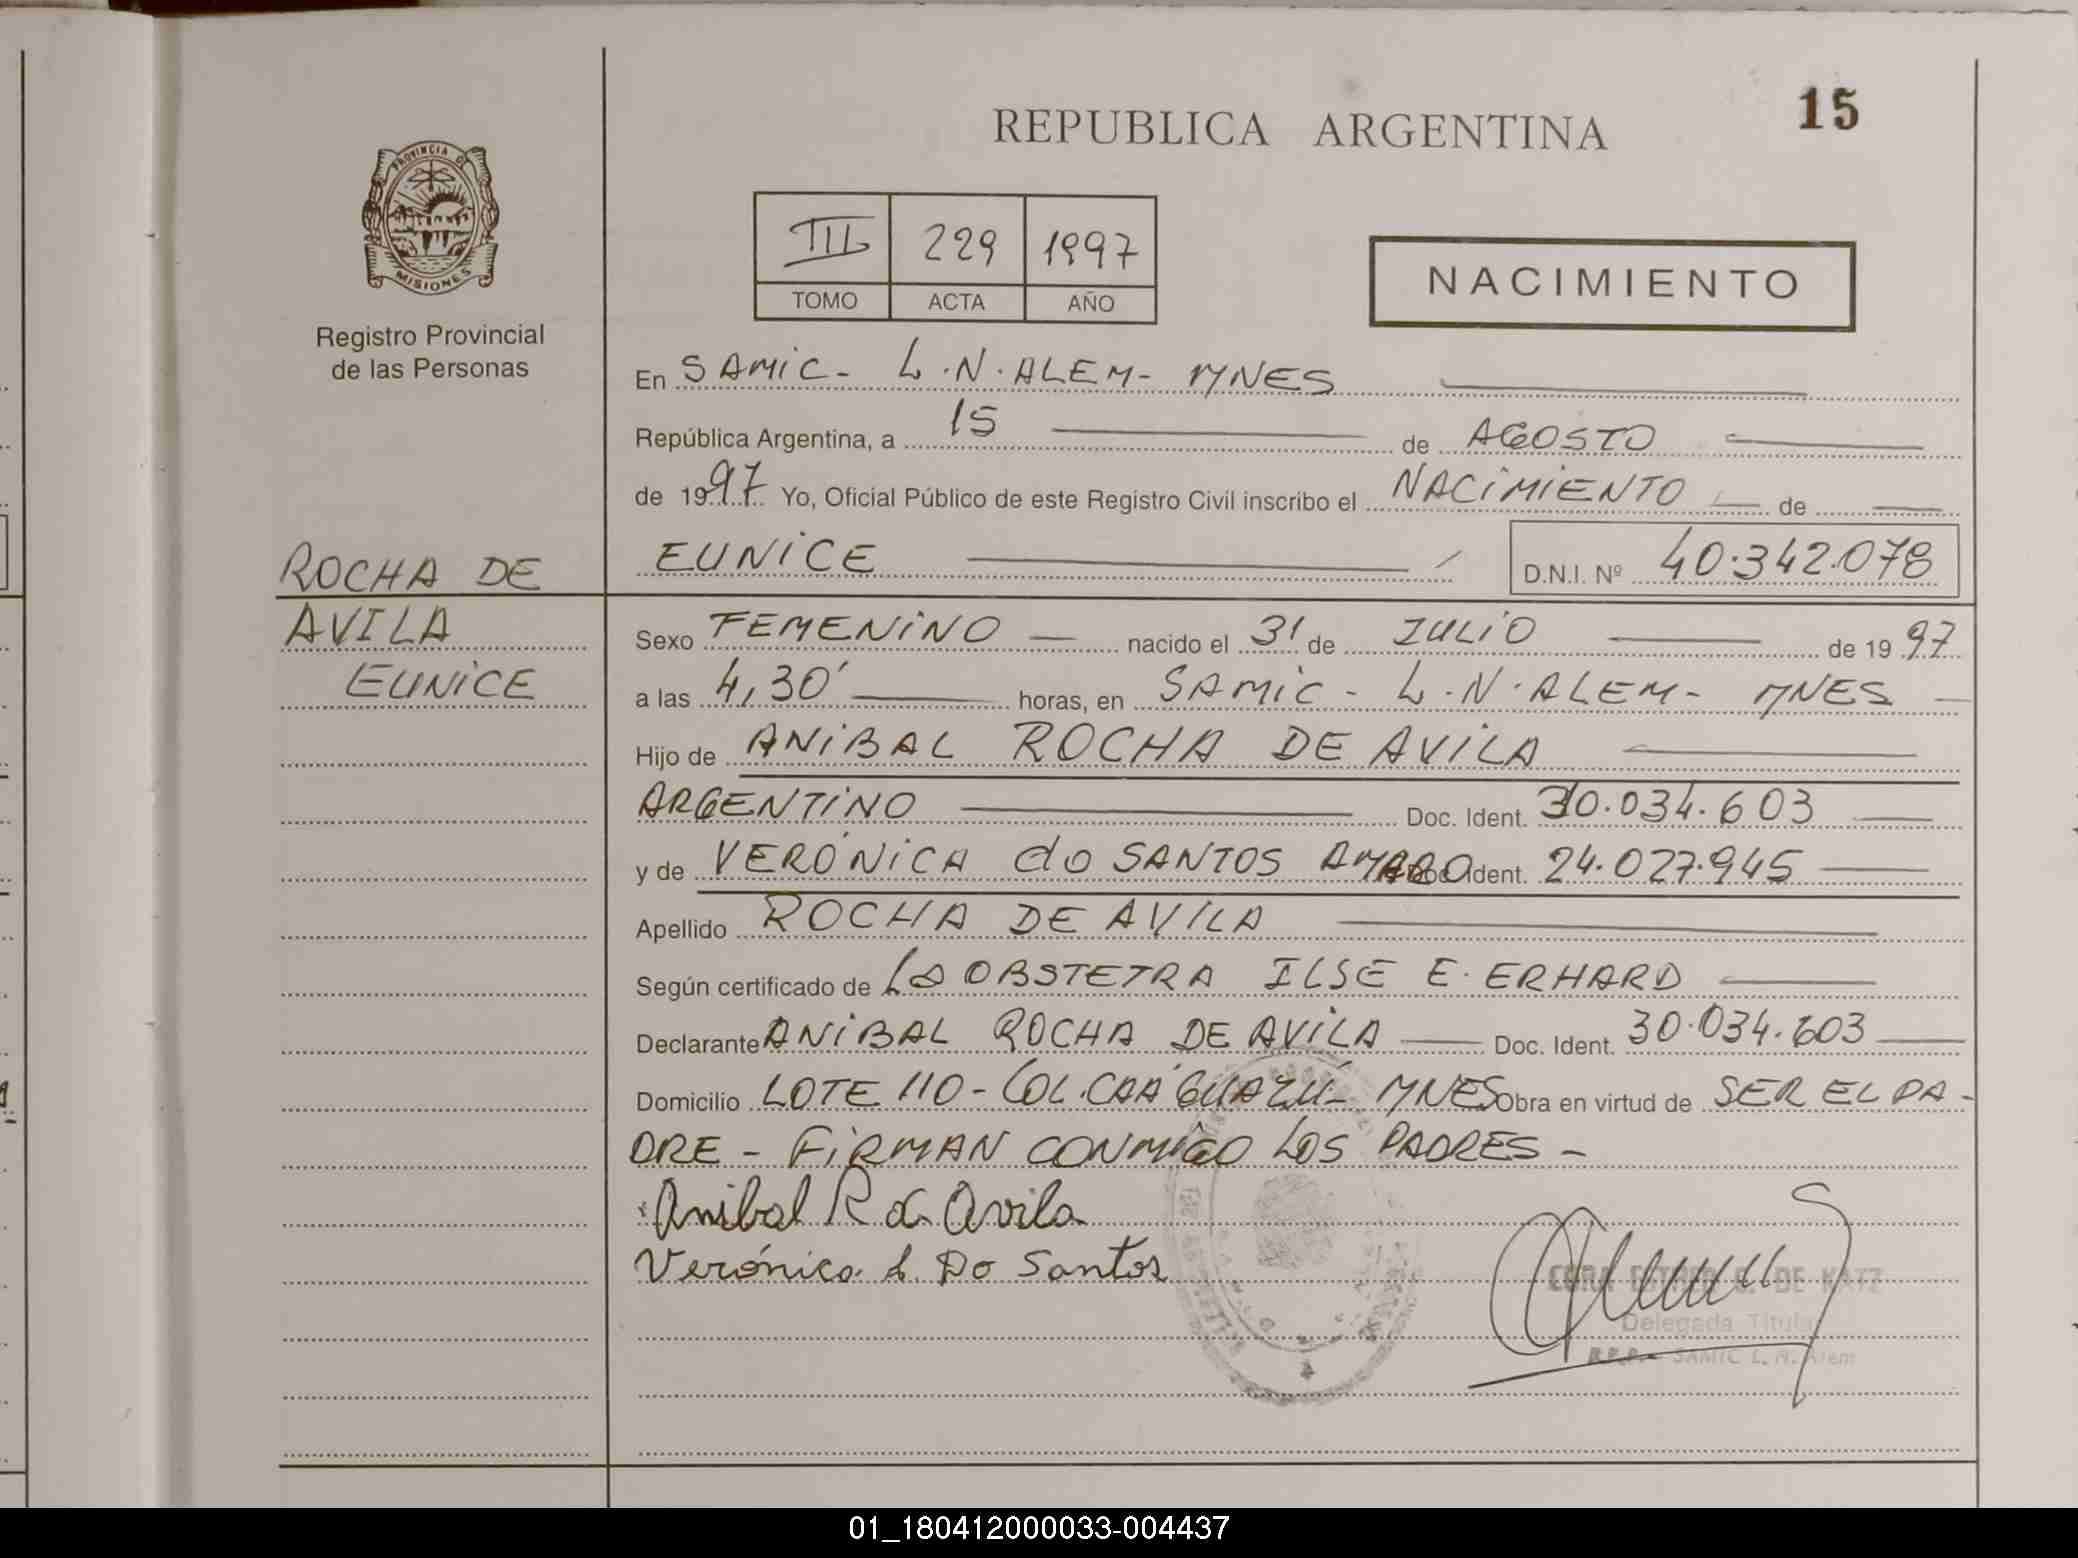 15
REPUBLICA ARGENTINA
PROVINCIA DE
MISIONES
Registro Provincial
de las Personas
III 229 1997
TOMO ACTA AÑO
NACIMIENTO
En SAMIC - L.N. ALEM - MNES
República Argentina, a 15 de AGOSTO
de 1997 Yo, Oficial Público de este Registro Civil inscribo el NACIMIENTO de
EUNICE D.N.I. Nº 40.342.078
ROCHA DE
AVILA
EUNICE
Sexo FEMENINO nacido el 31 de JULIO de 1997
a las 4,30' horas, en SAMIC - L.N. ALEM - MNES
Hijo de ANIBAL ROCHA DE AVILA
ARGENTINO Doc. Ident. 30.034.603
y de VERÓNICA do SANTOS AMARO Doc. Ident. 24.027.945
Apellido ROCHA DE AVILA
Según certificado de La OBSTETRA ILSE E. ERHARD
Declarante ANIBAL ROCHA DE AVILA Doc. Ident. 30.034.603
Domicilio LOTE 110 - COL. CAA GUAZÚ - MNES Obra en virtud de SER EL PA-
DRE - FIRMAN CONMIGO LOS PADRES -
Anibal R de Avila
Verónica Do Santos
ESTHER DE KATZ
Delegada Titular
R.P.P. - SAMIC L. N. Alem
01_180412000033-004437